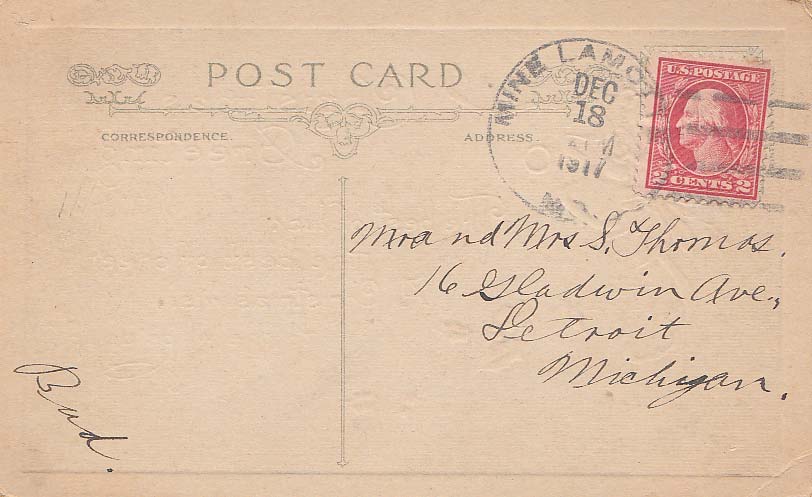 POST CARD
CORRESPONDENCE.
ADDRESS.
MINE LAMOTTE
DEC
18
1917
MO.
U.S. POSTAGE
2 CENTS 2
Mr and Mrs S. Thomas.
16 Gladwin Ave.,
Detroit
Michigan.
Bud.